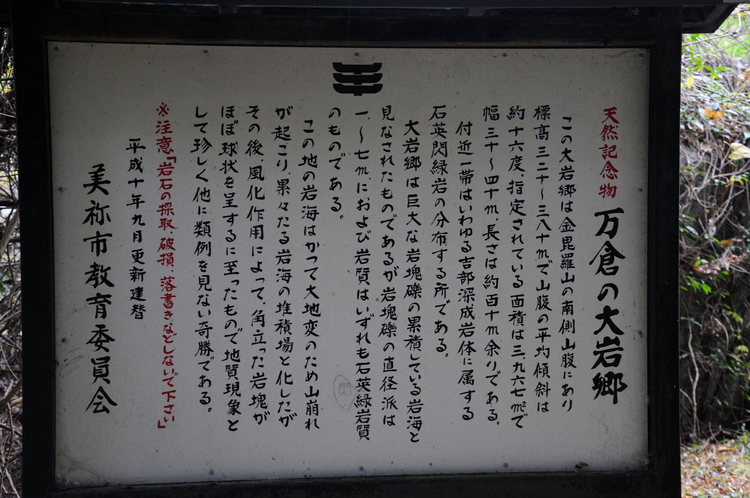 天然記念物 万倉の大岩郷
この大岩郷は金毘羅山の南側山腹にあり
標高三二十〜三八十mで山腹の平均傾斜は
約十六度、指定されている面積は三,九六七m²で
幅三十〜四十m、長さは約百十m余りである。
付近一帯はいわゆる吉部深成岩体に属する
石英閃緑岩の分布する所である。
大岩郷は巨大な岩塊礫の累積している岩海と
見なされたものであるが岩塊礫の直径派は
一〜七mにおよび岩質はいずれも石英緑岩質
のものである。
この地の岩海はかつて大地変のため山崩れ
が起こり、累々たる岩海の堆積場と化したが
その後、風化作用によって、角立った岩塊が
ほぼ球状を呈するに至ったもので地質現象と
して珍しく他に類例を見ない奇勝である。
※注意「岩石の採取、破損、落書きなどしないで下さい」
平成十年九月更新建替
美祢市教育委員会